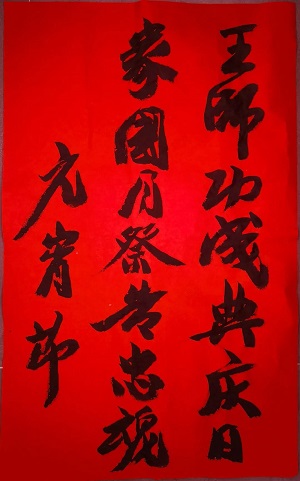 王师功成典庆日
家國月祭告忠魂
元宵节